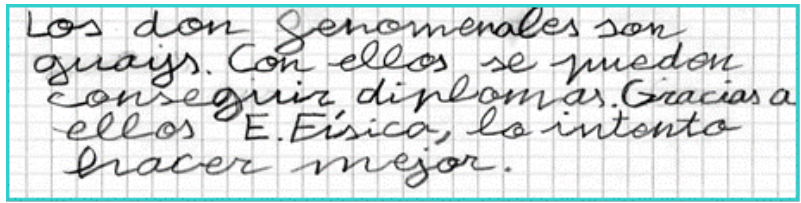 Los don Genomenales son
guays. Con ellos se pueden
conseguir diplomas. Gracias a
ellos E. Eísica, lo intento
hacer mejor.